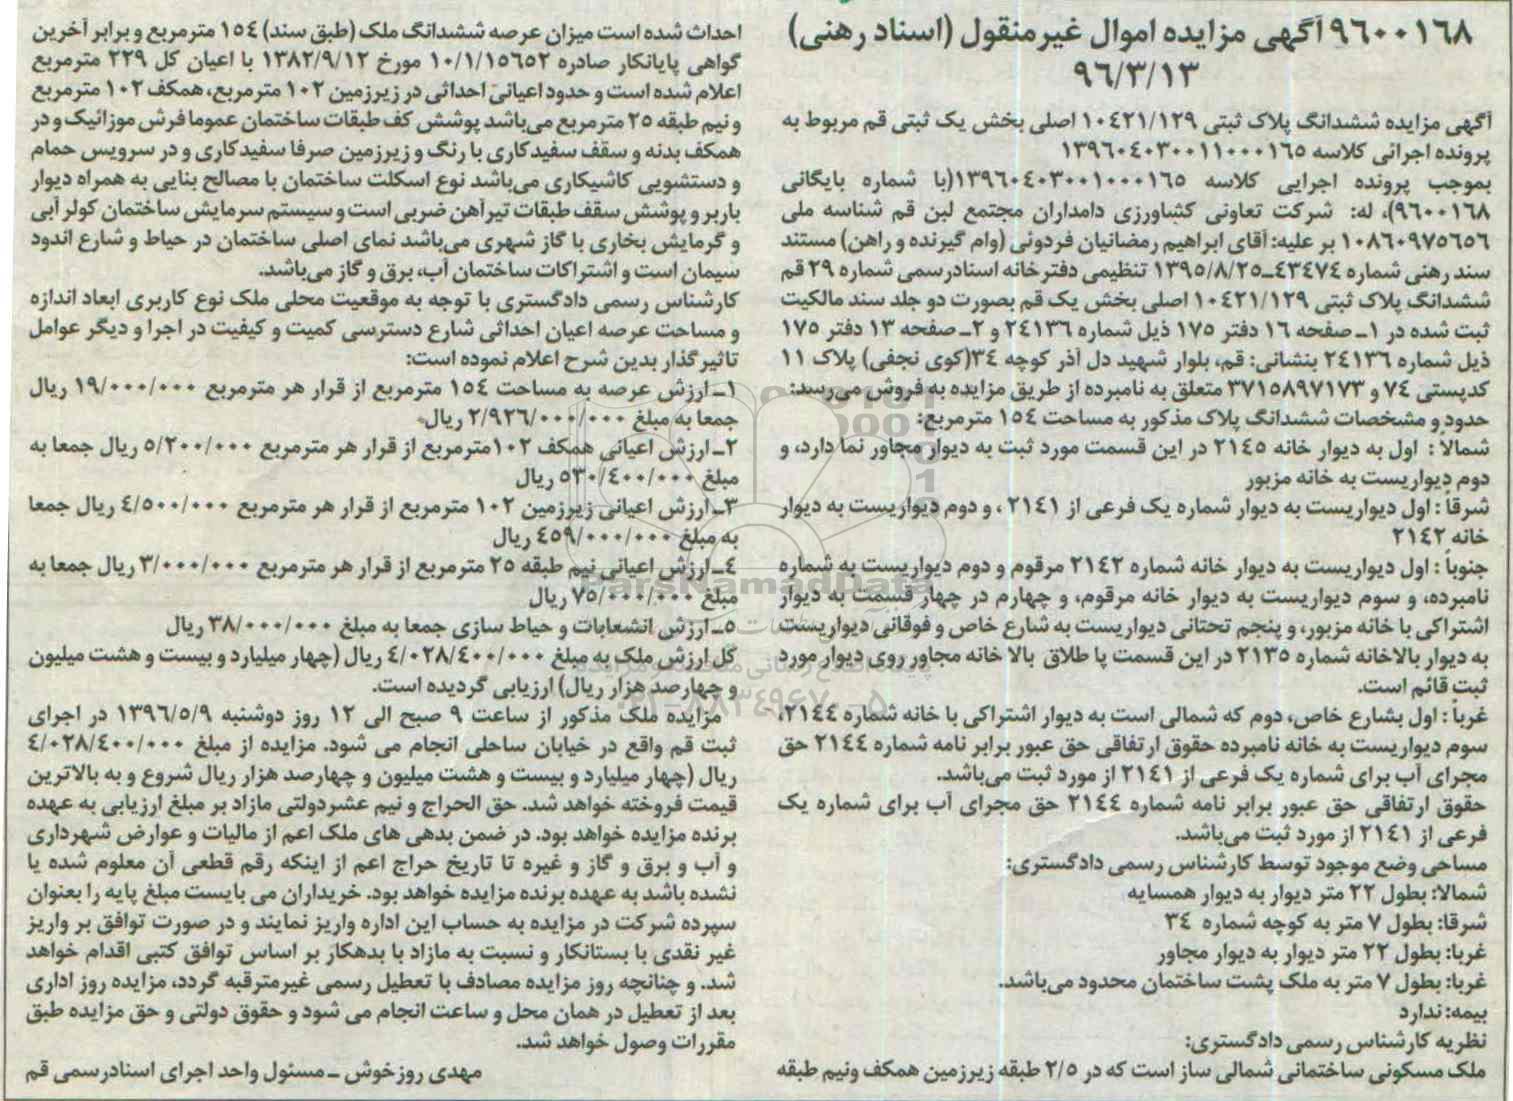 ۹۶۰۰۱۶۸ آگهی مزایده اموال غیرمنقول (اسناد رهنی)
۹۶/۳/۱۳
آگهی مزایده ششدانگ پلاک ثبتی ۱۰۴۲۱/۱۲۹ اصلی بخش یک ثبتی قم مربوط به
پرونده اجرائی کلاسه ۱۳۹۶۰۴۰۳۰۰۱۱۰۰۰۱۶۵
بموجب پرونده اجرایی کلاسه ۱۳۹۶۰۴۰۳۰۰۱۰۰۰۱۶۵(با شماره بایگانی
۹۶۰۰۱۶۸)، له: شرکت تعاونی کشاورزی دامداران مجتمع لبن قم شناسه ملی
۱۰۸۶۰۹۷۵۶۵۶ بر علیه: آقای ابراهیم رمضانیان فردوئی (وام گیرنده و راهن) مستند
سند رهنی شماره ۴۳۴۷۴-۱۳۹۵/۸/۲۵ تنظیمی دفترخانه اسنادرسمی شماره ۲۹ قم
ششدانگ پلاک ثبتی ۱۰۴۲۱/۱۲۹ اصلی بخش یک قم بصورت دو جلد سند مالکیت
ثبت شده در ۱ـ صفحه ۱۶ دفتر ۱۷۵ ذیل شماره ۲۴۱۳۶ و ۲ـ صفحه ۱۳ دفتر ۱۷۵
ذیل شماره ۲۴۱۳۶ بنشانی: قم، بلوار شهید دل آذر کوچه ۳۴(کوی نجفی) پلاک ۱۱
کدپستی ۷۴ و ۳۷۱۵۸۹۷۱۷۳ متعلق به نامبرده از طریق مزایده به فروش می‌رسد:
حدود و مشخصات ششدانگ پلاک مذکور به مساحت ۱۵۴ مترمربع:
شمالاً : اول به دیوار خانه ۲۱۴۵ در این قسمت مورد ثبت به دیوار مجاور نما دارد، و
دوم دیواریست به خانه مزبور
شرقاً : اول دیواریست به دیوار شماره یک فرعی از ۲۱۴۱ ، و دوم دیواریست به دیوار
خانه ۲۱۴۲
جنوباً : اول دیواریست به دیوار خانه شماره ۲۱۴۲ مرقوم و دوم دیواریست به شماره
نامبرده، و سوم دیواریست به دیوار خانه مرقوم، و چهارم در چهار قسمت به دیوار
اشتراکی با خانه مزبور، و پنجم تحتانی دیواریست به شارع خاص و فوقانی دیواریست
به دیوار بالاخانه شماره ۲۱۳۵ در این قسمت پا طلاق بالا خانه مجاور روی دیوار مورد
ثبت قائم است.
غرباً : اول بشارع خاص، دوم که شمالی است به دیوار اشتراکی با خانه شماره ۲۱۴۴،
سوم دیواریست به خانه نامبرده حقوق ارتفاقی حق عبور برابر نامه شماره ۲۱۴۴ حق
مجرای آب برای شماره یک فرعی از ۲۱۴۱ از مورد ثبت می‌باشد.
حقوق ارتفاقی حق عبور برابر نامه شماره ۲۱۴۴ حق مجرای آب برای شماره یک
فرعی از ۲۱۴۱ از مورد ثبت می‌باشد.
مساحی وضع موجود توسط کارشناس رسمی دادگستری:
شمالا: بطول ۲۲ متر دیوار به دیوار همسایه
شرقا: بطول ۷ متر به کوچه شماره ۳۴
غربا: بطول ۲۲ متر دیوار به دیوار مجاور
غربا: بطول ۷ متر به ملک پشت ساختمان محدود می‌باشد.
بیمه: ندارد
نظریه کارشناس رسمی دادگستری:
ملک مسکونی ساختمانی شمالی ساز است که در ۲/۵ طبقه زیرزمین همکف ونیم طبقه
احداث شده است میزان عرصه ششدانگ ملک (طبق سند) ۱۵۴ مترمربع و برابر آخرین
گواهی پایانکار صادره ۱۰/۱/۱۵۶۵۲ مورخ ۱۳۸۲/۹/۱۲ با اعیان کل ۲۲۹ مترمربع
اعلام شده است و حدود اعیانی احداثی در زیرزمین ۱۰۲ مترمربع، همکف ۱۰۲ مترمربع
و نیم طبقه ۲۵ مترمربع می‌باشد پوشش کف طبقات ساختمان عموما فرش موزائیک و در
همکف بدنه و سقف سفیدکاری با رنگ و زیرزمین صرفا سفیدکاری و در سرویس حمام
و دستشویی کاشیکاری می‌باشد نوع اسکلت ساختمان با مصالح بنایی به همراه دیوار
باربر و پوشش سقف طبقات تیرآهن ضربی است و سیستم سرمایش ساختمان کولر آبی
و گرمایش بخاری با گاز شهری می‌باشد نمای اصلی ساختمان در حیاط و شارع اندود
سیمان است و اشتراکات ساختمان آب، برق و گاز می‌باشد.
کارشناس رسمی دادگستری با توجه به موقعیت محلی ملک نوع کاربری ابعاد اندازه
و مساحت عرصه اعیان احداثی شارع دسترسی کمیت و کیفیت در اجرا و دیگر عوامل
تاثیرگذار بدین شرح اعلام نموده است:
۱ـ ارزش عرصه به مساحت ۱۵۴ مترمربع از قرار هر مترمربع ۱۹/۰۰۰/۰۰۰ ریال
جمعا به مبلغ ۲/۹۲۶/۰۰۰/۰۰۰ ریال
۲ـ ارزش اعیانی همکف ۱۰۲مترمربع از قرار هر مترمربع ۵/۲۰۰/۰۰۰ ریال جمعا به
مبلغ ۵۳۰/۴۰۰/۰۰۰ ریال
۳ـ ارزش اعیانی زیرزمین ۱۰۲ مترمربع از قرار هر مترمربع ۴/۵۰۰/۰۰۰ ریال جمعا
به مبلغ ۴۵۹/۰۰۰/۰۰۰ ریال
۴ـ ارزش اعیانی نیم طبقه ۲۵ مترمربع از قرار هر مترمربع ۳/۰۰۰/۰۰۰ ریال جمعا به
مبلغ ۷۵/۰۰۰/۰۰۰ ریال
۵ـ ارزش انشعابات و حیاط سازی جمعا به مبلغ ۳۸/۰۰۰/۰۰۰ ریال
کل ارزش ملک به مبلغ ۴/۰۲۸/۴۰۰/۰۰۰ ریال (چهار میلیارد و بیست و هشت میلیون
و چهارصد هزار ریال) ارزیابی گردیده است.
مزایده ملک مذکور از ساعت ۹ صبح الی ۱۲ روز دوشنبه ۱۳۹۶/۵/۹ در اجرای
ثبت قم واقع در خیابان ساحلی انجام می شود. مزایده از مبلغ ۴/۰۲۸/۴۰۰/۰۰۰
ریال (چهار میلیارد و بیست و هشت میلیون و چهارصد هزار ریال شروع و به بالاترین
قیمت فروخته خواهد شد. حق الحراج و نیم عشردولتی مازاد بر مبلغ ارزیابی به عهده
برنده مزایده خواهد بود. در ضمن بدهی های ملک اعم از مالیات و عوارض شهرداری
و آب و برق و گاز و غیره تا تاریخ حراج اعم از اینکه رقم قطعی آن معلوم شده یا
نشده باشد به عهده برنده مزایده خواهد بود. خریداران می بایست مبلغ پایه را بعنوان
سپرده شرکت در مزایده به حساب این اداره واریز نمایند و در صورت توافق بر واریز
غیر نقدی با بستانکار و نسبت به مازاد با بدهکار بر اساس توافق کتبی اقدام خواهد
شد. و چنانچه روز مزایده مصادف با تعطیل رسمی غیرمترقبه گردد، مزایده روز اداری
بعد از تعطیل در همان محل و ساعت انجام می شود و حقوق دولتی و حق مزایده طبق
مقررات وصول خواهد شد.
مهدی روزخوش ـ مسئول واحد اجرای اسنادرسمی قم
ParsNamadData
۰۲۱-۸۸۳۴۹۶۷۰-۵